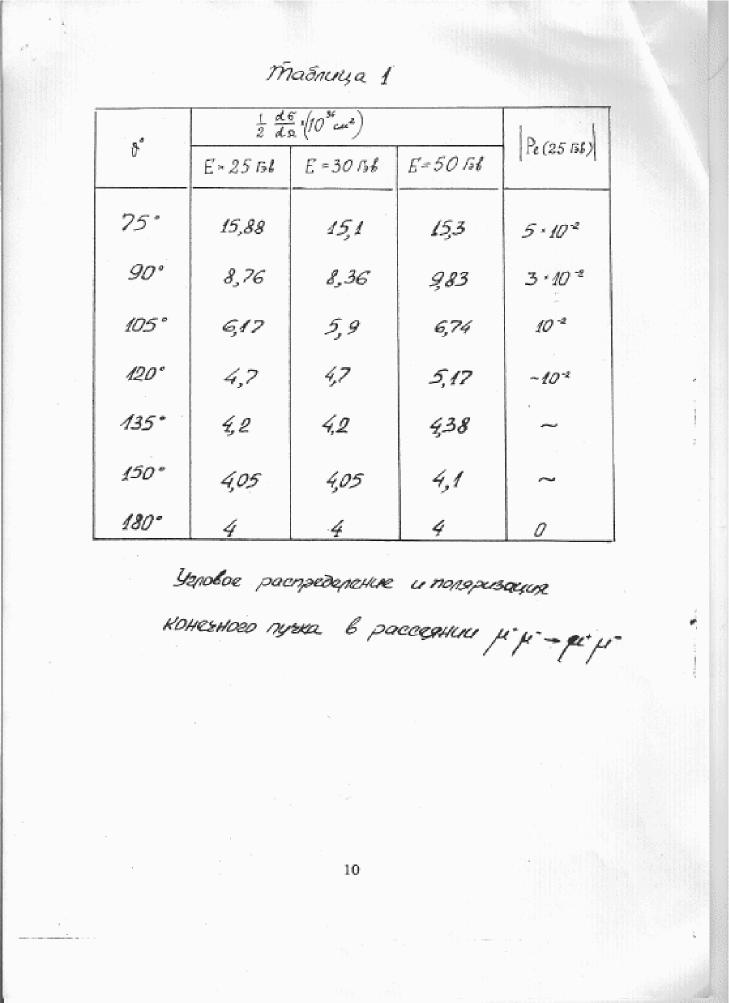 Таблица 1
ϑ° | 1/2 dσ/dΩ · (10³⁶ см²) | |Pe (25 Гэв)|
E = 25 Гэв | E = 30 Гэв | E = 50 Гэв
75° | 15,88 | 15,1 | 15,3 | 5 · 10⁻²
90° | 8,76 | 8,36 | 9,83 | 3 · 10⁻²
105° | 6,17 | 5,9 | 6,74 | 10⁻²
120° | 4,7 | 4,7 | 5,17 | ~10⁻²
135° | 4,2 | 4,2 | 4,38 | ~
150° | 4,05 | 4,05 | 4,1 | ~
180° | 4 | 4 | 4 | 0
Угловое распределение и поляризация
конечного пучка в рассеянии μ⁺μ⁻→μ⁺μ⁻
10